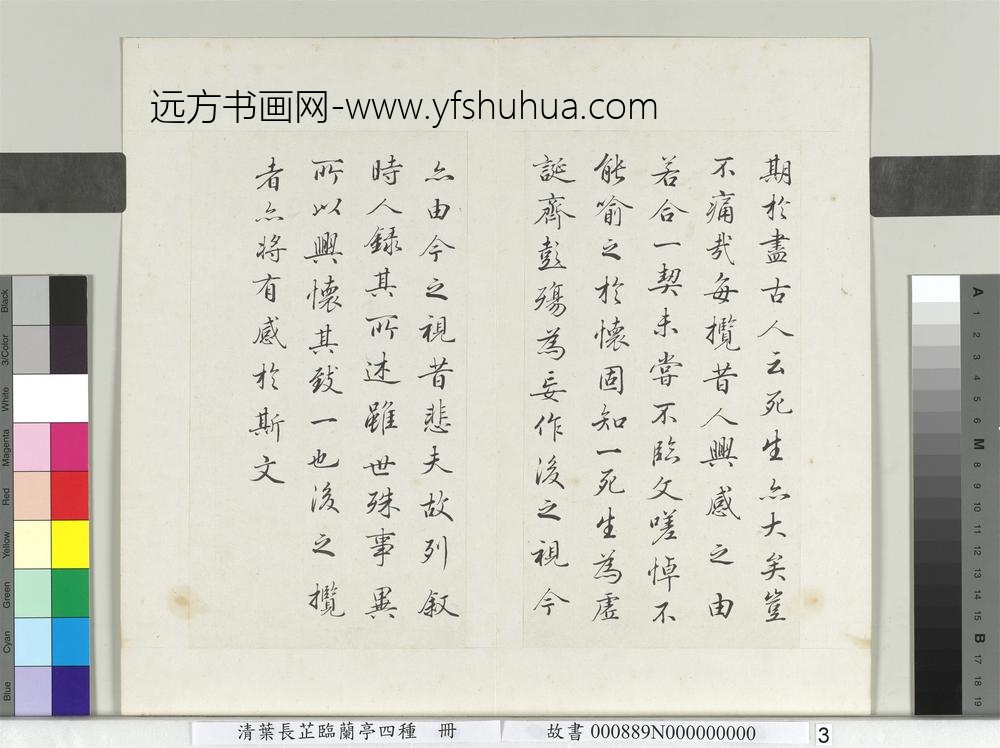 远方书画网-www.yfshuhua.com
期於盡古人云死生亦大矣豈
不痛哉每攬昔人興感之由
若合一契未嘗不臨文嗟悼不
能喻之於懷固知一死生為虛
誕齊彭殤為妄作後之視今
亦由今之視昔悲夫故列敘
時人錄其所述雖世殊事異
所以興懷其致一也後之攬
者亦將有感於斯文
Black
3/Color
White
Magenta
Red
Yellow
Green
Cyan
Blue
A
1
2
3
4
5
6
M
8
9
10
11
12
13
14
15
B
17
18
19
清葉長芷臨蘭亭四種 冊
故書 000889N000000000
3